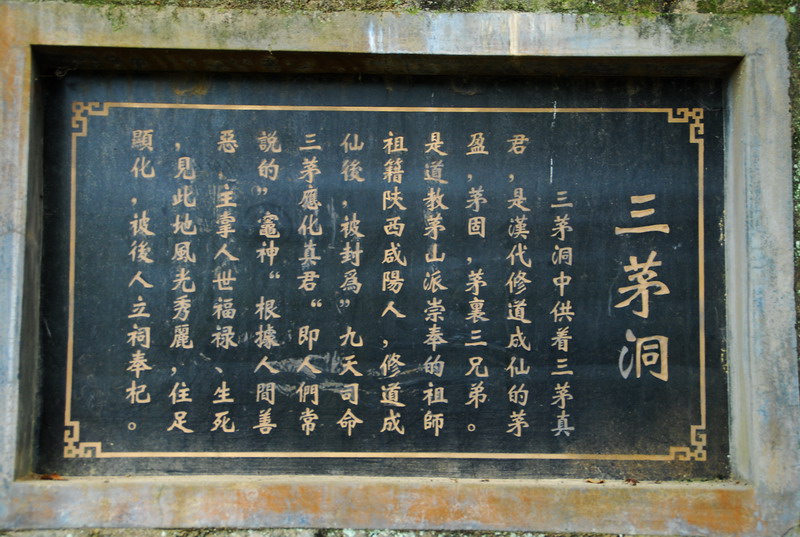 三茅洞
三茅洞中供着三茅真
君,是漢代修道成仙的茅
盈,茅固,茅裏三兄弟。
是道教茅山派崇奉的祖師
祖籍陝西咸陽人,修道成
仙後,被封爲”九天司命
三茅應化真君“即人們常
說的”竈神“根據人間善
惡,主掌人世福禄、生死
,見此地風光秀麗,住足
顯化,被後人立祠奉杞。